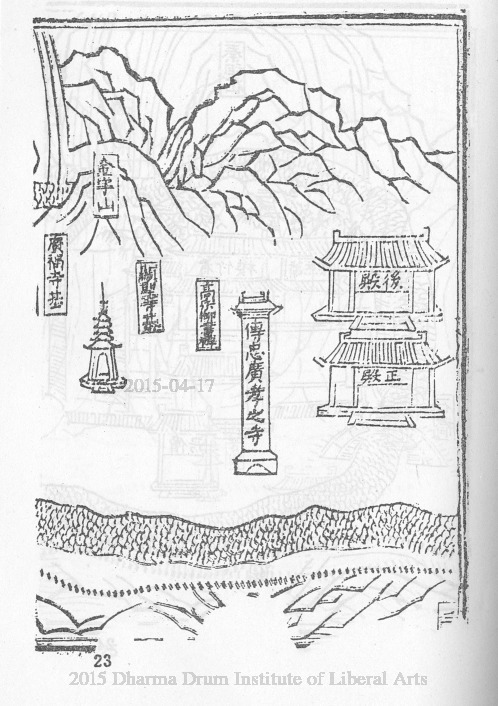 後殿
正殿
傳忠廣孝之寺
高宗御書碑
金字山
廣福寺基
2015-04-17
23
2015 Dharma Drum Institute of Liberal Arts